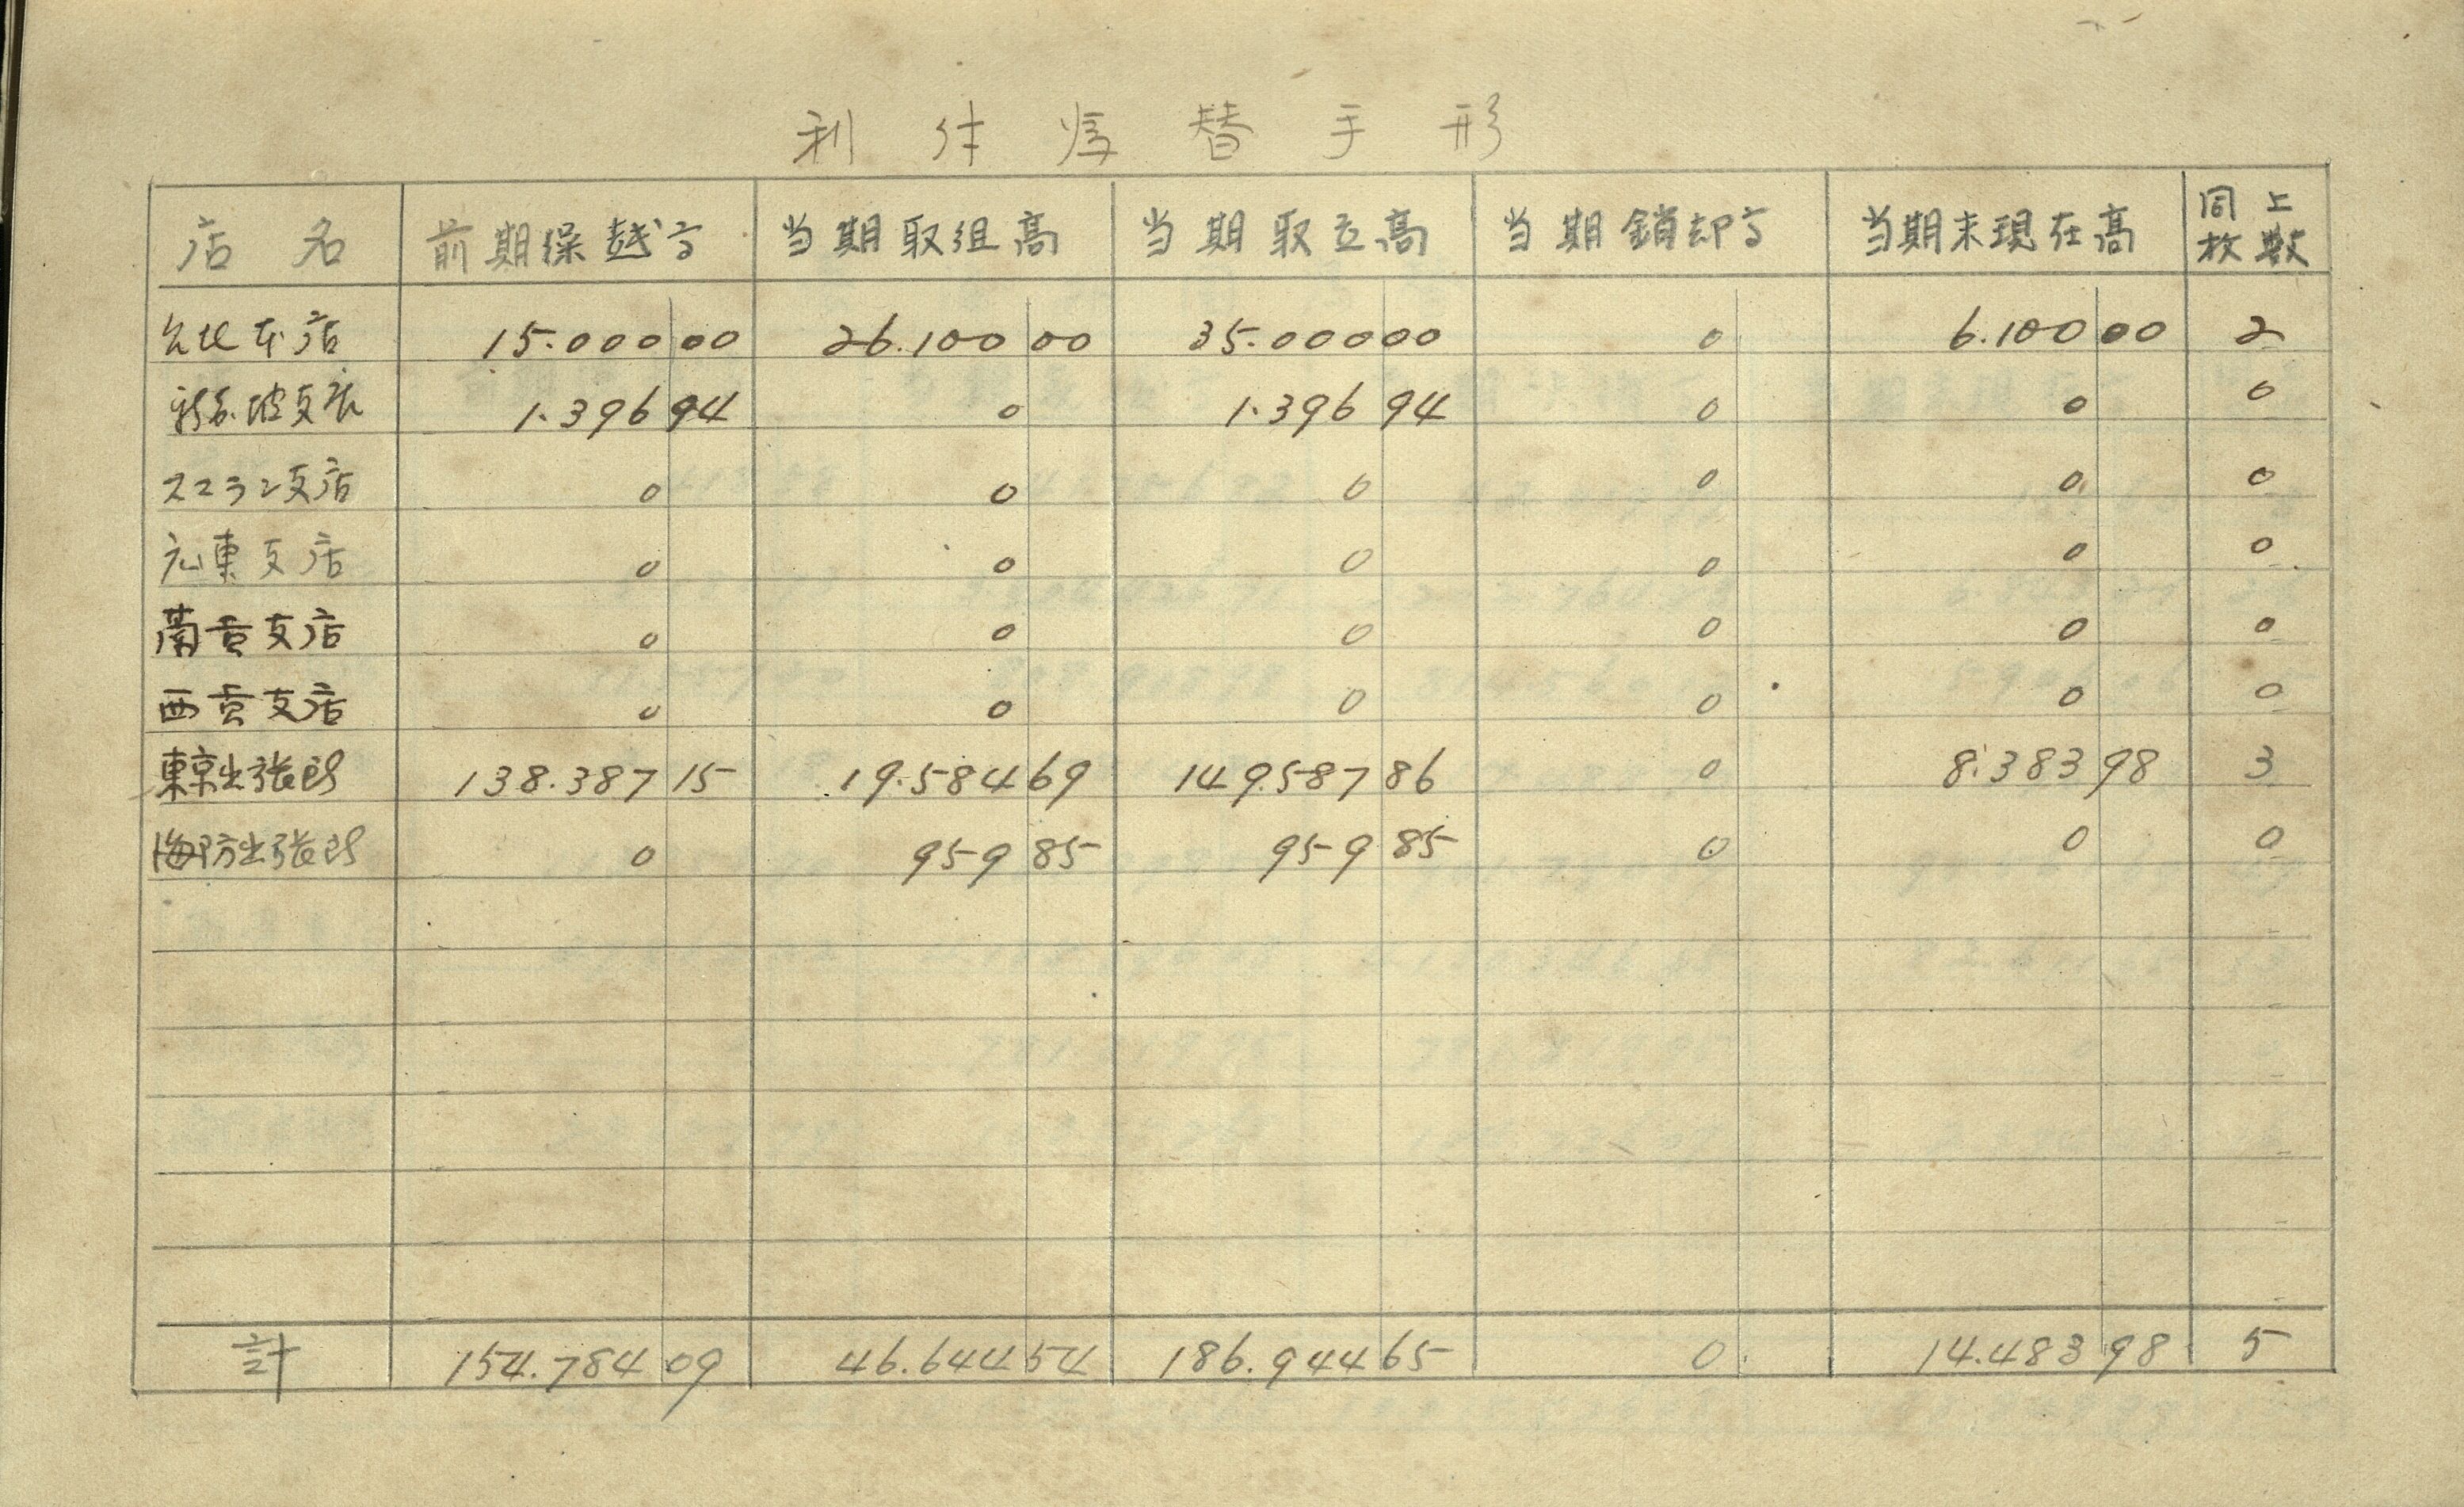 利付為替手形
店名 前期繰越高 当期取組高 当期取立高 当期銷却高 当期末現在高 同上枚数
台北本店 15.000 00 26.100 00 35.000 00 0 6.100 00 2
新嘉坡支店 1.396 94 0 1.396 94 0 0 0
スマラン支店 0 0 0 0 0 0
広東支店 0 0 0 0 0 0
蘭貢支店 0 0 0 0 0 0
西貢支店 0 0 0 0 0 0
東京出張所 138.387 15 19.584 69 149.587 86 0 8.383 98 3
海防出張所 0 959 85 959 85 0 0 0
計 154.784 09 46.644 54 186.944 65 0 14.483 98 5